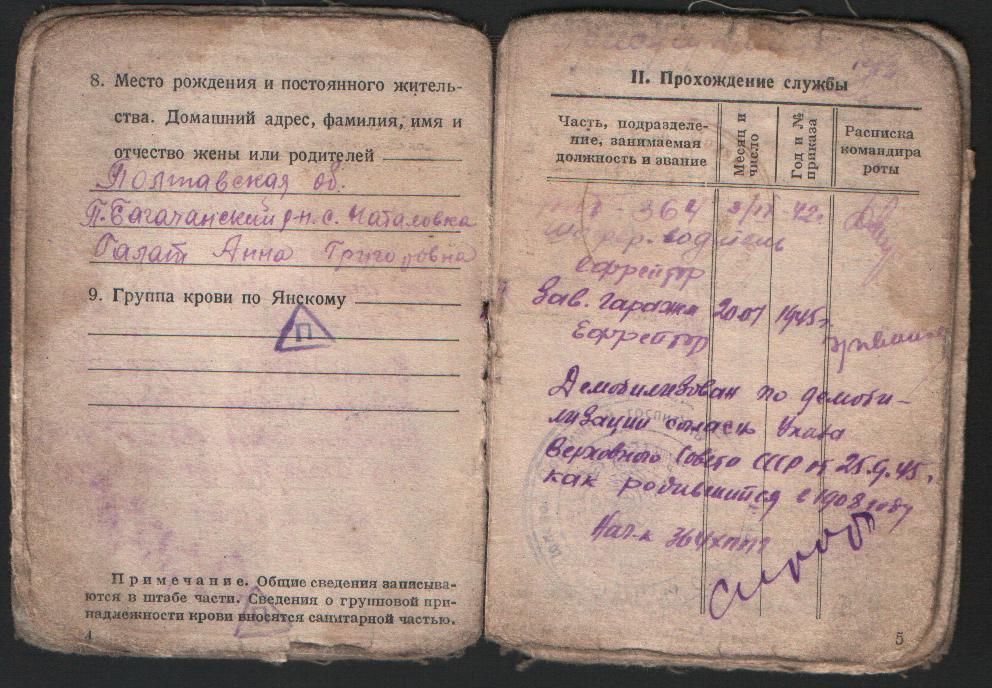 8. Место рождения и постоянного житель-
ства. Домашний адрес, фамилия, имя и
отчество жены или родителей
Полтавская об.
П. Багачанский р-н. с. Маталовка
Галат Анна Григоровна
9. Группа крови по Янскому
П
Примечание. Общие сведения записыва-
ются в штабе части. Сведения о групповой при-
надлежности крови вносятся санитарной частью.
П
4
II. Прохождение службы
Часть, подразделе-
ние, занимаемая
должность и звание
Месяц и
число
Год и №
приказа
Расписка
командира
роты
364 42г
шофер-водитель
ефрейтор
Зав. гаража 20 07 1945г.
Ефрейтор
Демобилизован по демоби-
лизации согласно Указа
Верховного Совета СССР от 25.9.45.
как родившийся в 1908 году
Нач-к 364 ХППГ
5